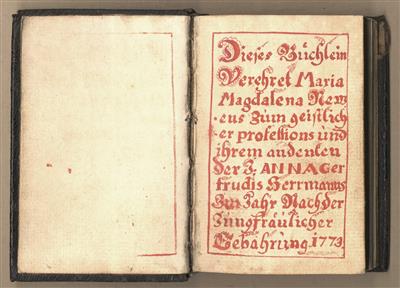 Dieses Büchlein
Verehret Maria
Magdalena New
eus Zum geistlich
er profeßions und
ihrem andenken
der J. ANNA Ger
trudis Herrmanns
Im Jahr Nach der
Jungfräulicher
Gebährung 1773